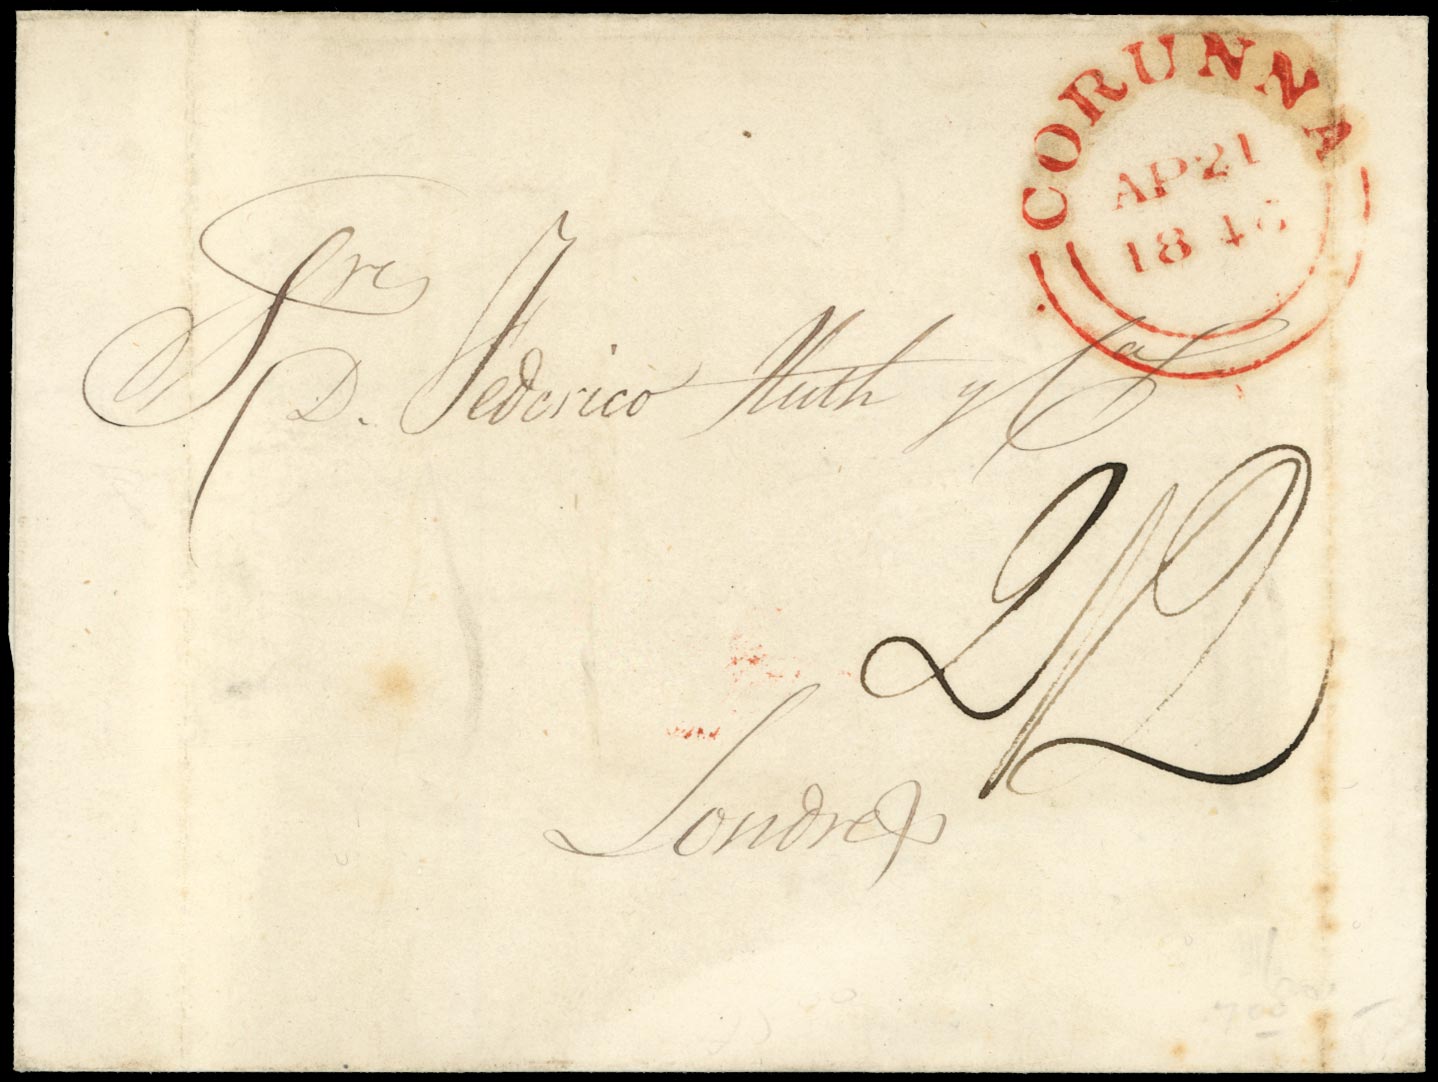 CORUNNA
AP 21
1846
Sres
D. Federico Huth y Ca
2/2
Londres
700